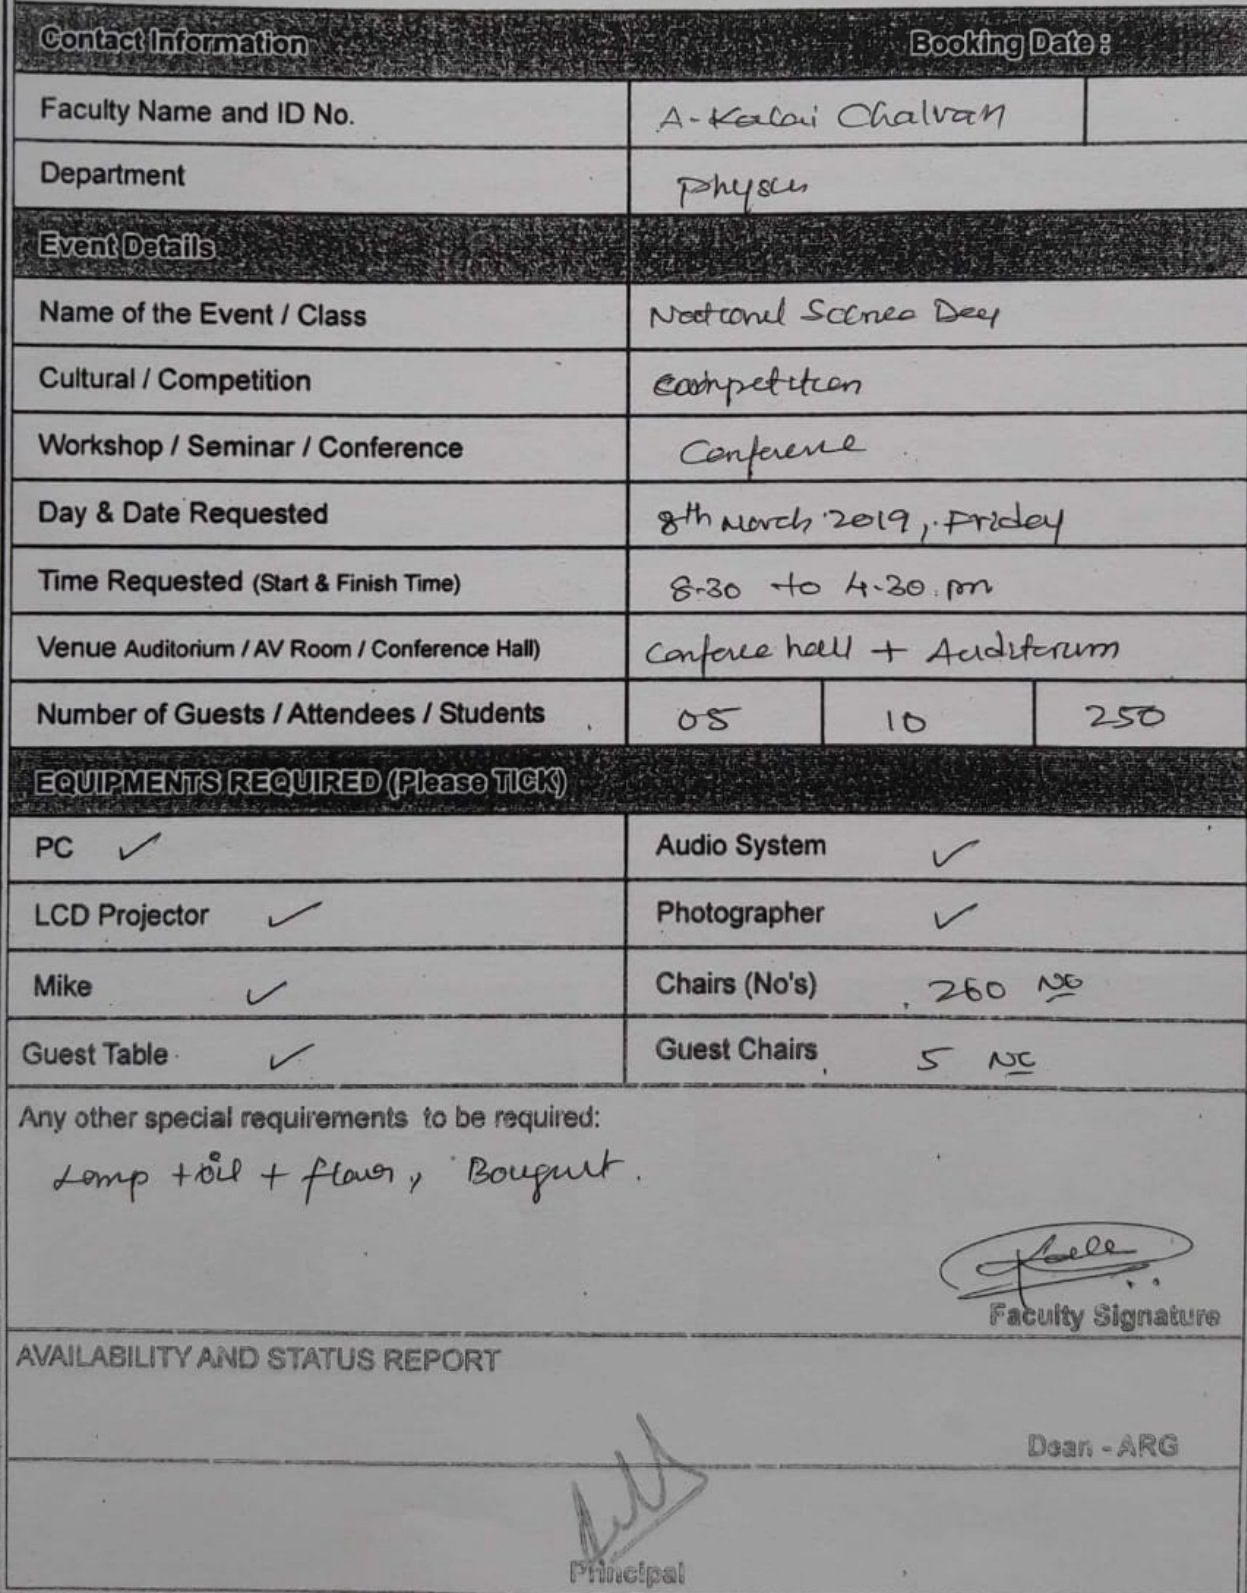 Contact Information Booking Date :
Faculty Name and ID No. A-Kalai Chalvan
Department Physics
Event Details
Name of the Event / Class National Science Day
Cultural / Competition Competition
Workshop / Seminar / Conference Conference
Day & Date Requested 8th March 2019, Friday
Time Requested (Start & Finish Time) 8-30 to 4-30 pm
Venue Auditorium / AV Room / Conference Hall) Conferce hall + Auditorium
Number of Guests / Attendees / Students 05 10 250
EQUIPMENTS REQUIRED (Please TICK)
PC ✓ Audio System ✓
LCD Projector ✓ Photographer ✓
Mike ✓ Chairs (No's) 260 No
Guest Table ✓ Guest Chairs 5 No
Any other special requirements to be required:
Lamp + oil + flower, Bouquet.
Faculty Signature
AVAILABILITY AND STATUS REPORT
Dean - ARG
Principal